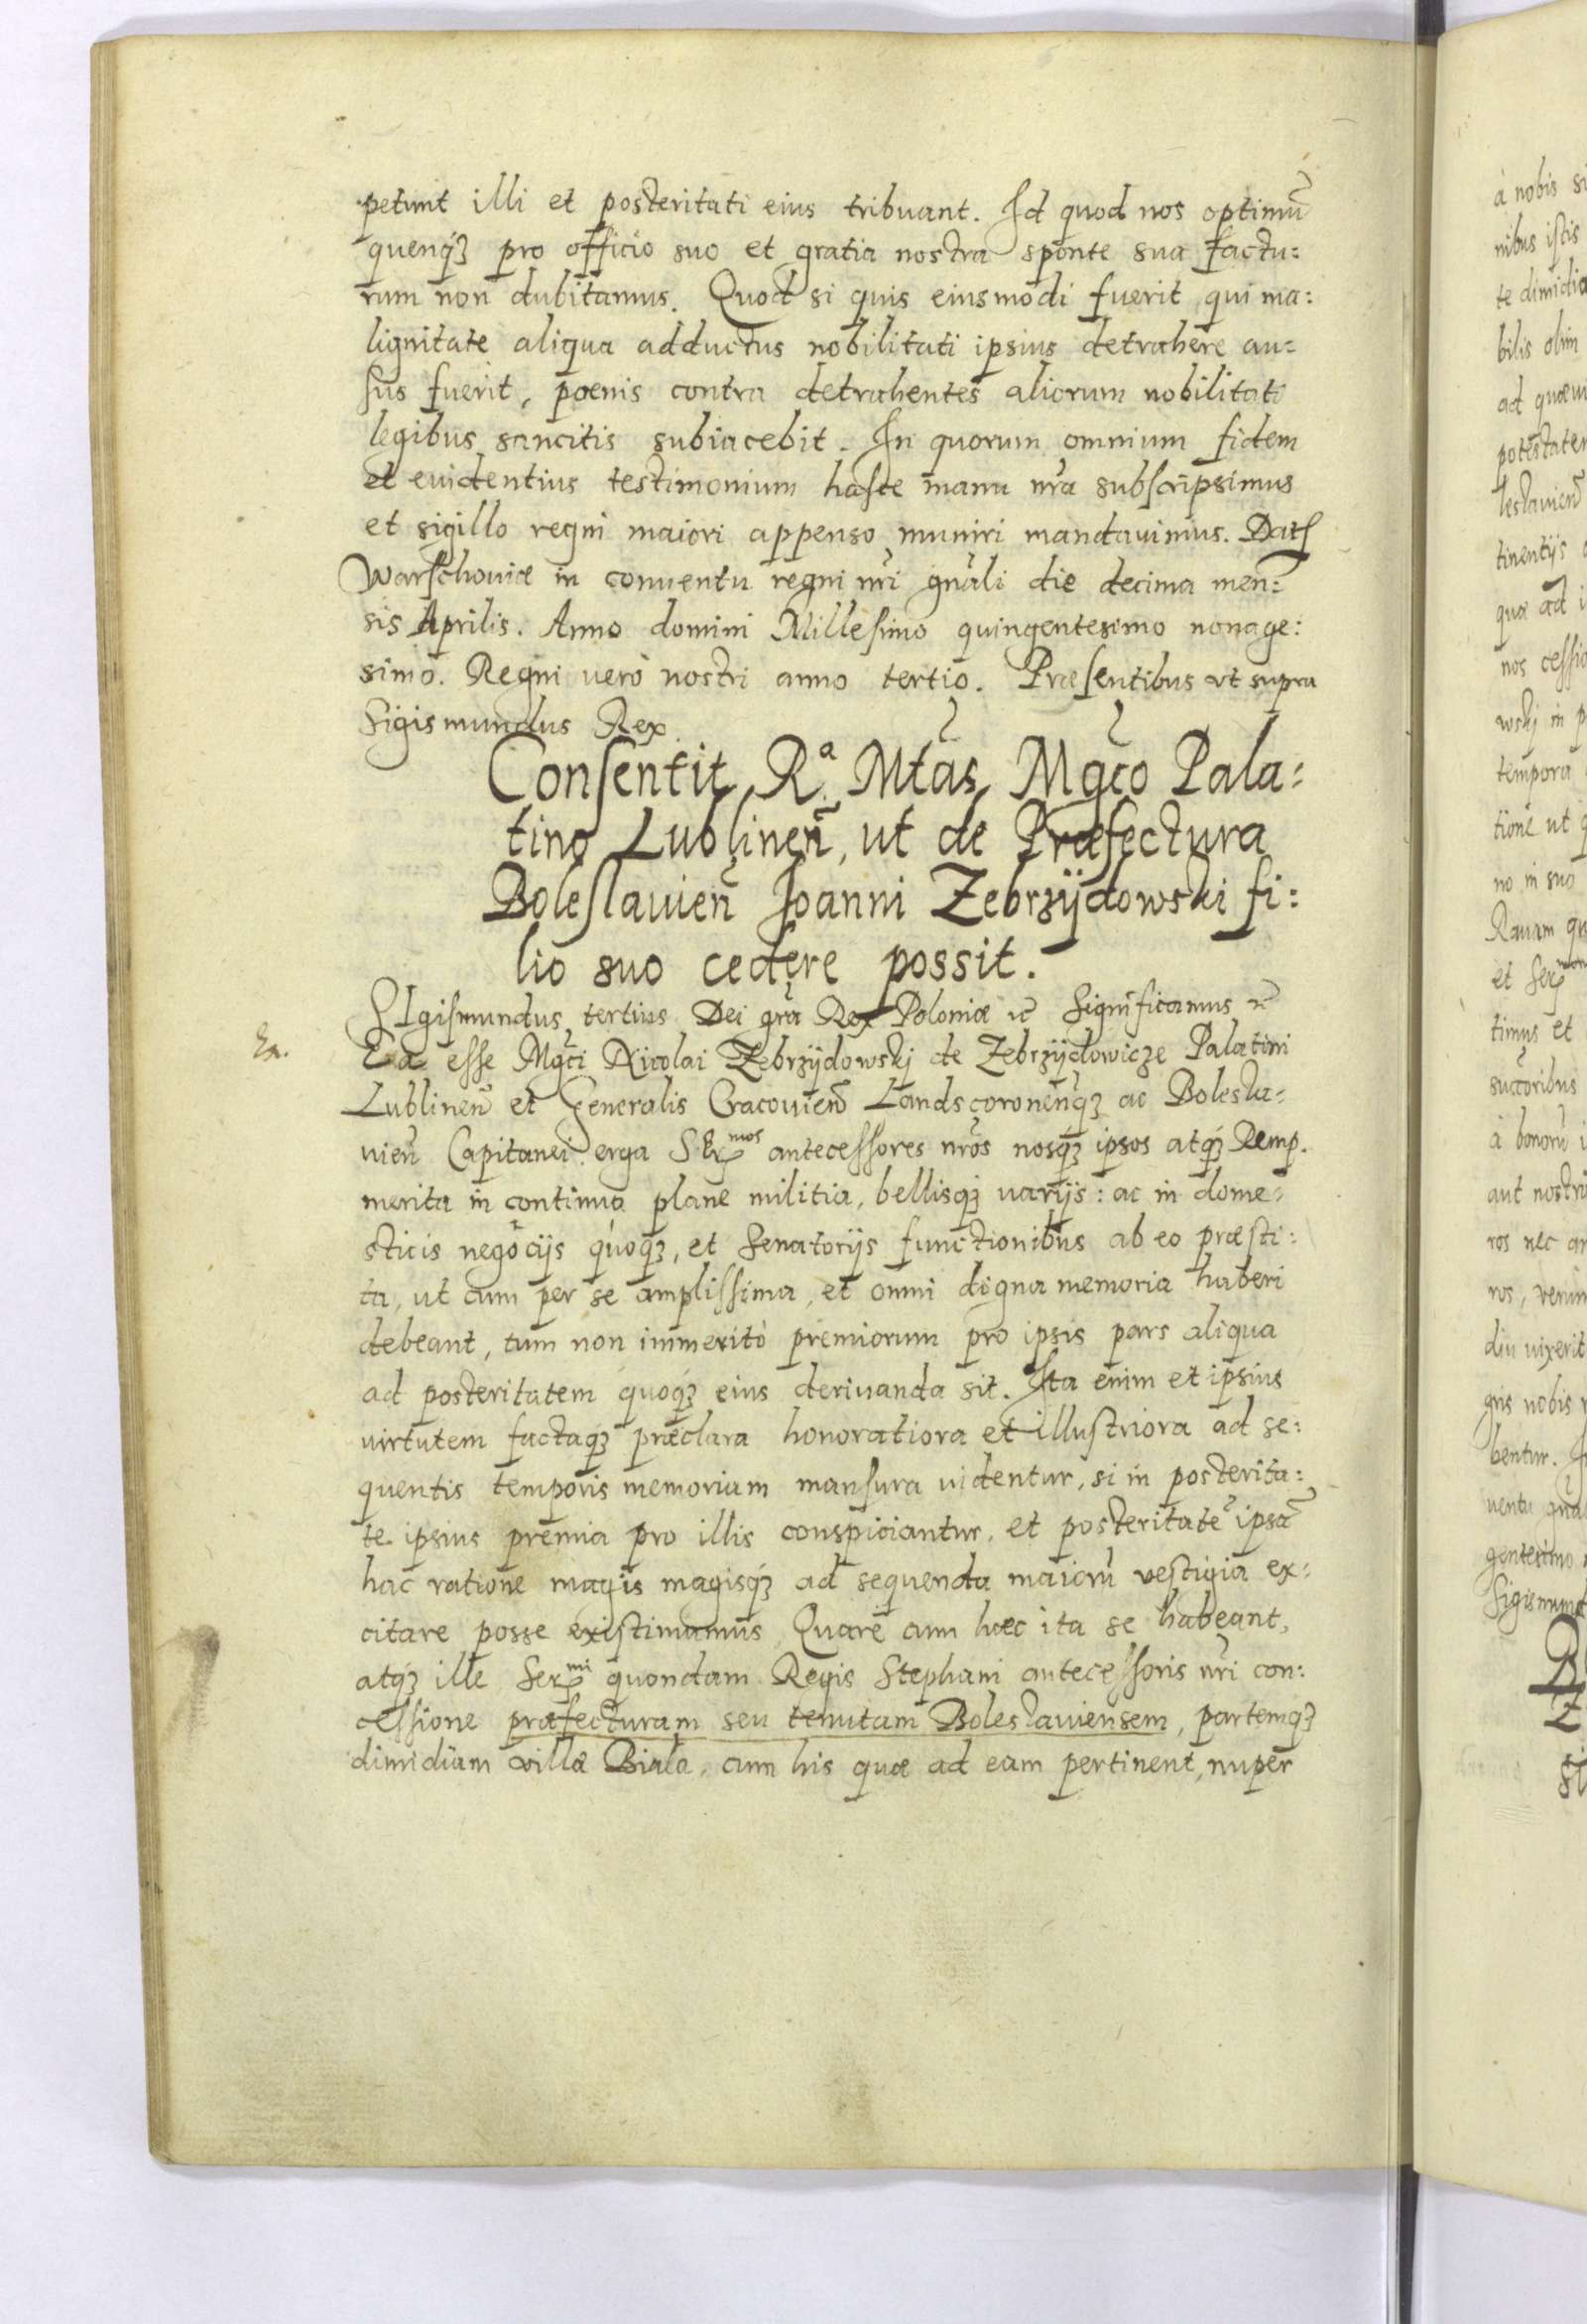 petunt illi et posteritati eius tribuant. Id quod nos optimũ
quenq́ꝫ pro officio suo et gratia nostra sponte sua factu:
rum non dubitamus. Quod si quis eiusmodi fuerit, qui ma:
lignitate aliqua adductus nobilitati ipsius detrahere au:
sus fuerit, poenis contra detrahentes aliorum nobilitati
legibus sancitis subiacebit. In quorum omnium fidem
et euidentius testimonium hasce manu nr̃a subscripsimus
et sigillo regni maiori appenso muniri mandauimus. Datꝭ
Warschouiæ in conuentu regni nr̃i gñali die decima men:
sis Aprilis. Anno domini Millesimo quingentesimo nonage:
simo. Regni uerò nostri anno tertio. Præsentibus vt supra
Sigismundus Rex.
Consentit Rª Mtãs Mgc̃o Pala:
tino Lublineñ, ut de Præfectura
Boleslauieñ Ioanni Zebrzÿdowski fi:
lio suo cedere possit.
SIgismundus tertius Dei grã Rex Poloniæ ꝛc̃ Significamus ꝛc̃
Ea.
Ea esse Mgc̃i Nicolai Zebrzÿdowskj de Zebrzÿdowicze Palatini
Lublineñ et Generalis Cracouieñ Landscoroneñq́ꝫ ac Bolesla:
uieñ Capitanei erga Serᵐᵒˢ antecessores nr̃os nosq́ꝫ ipsos atq́ꝫ Remp.
merita in continua plane militia, bellisq́ꝫ uarijs: ac in dome:
sticis negocijs quoq́ꝫ, et Senatorijs functionibus ab eo præsti:
ta, ut cum per se amplissima, et omni digna memoria haberi
debeant, tum non immeritò premiorum pro ipsis pars aliqua
ad posteritatem quoq́ꝫ eius deriuanda sit. Ita enim et ipsius
virtutem factaq́ꝫ præclara honoratiora et illustriora ad se:
quentis temporis memoriam mansura uidentur, si in posterita:
te ipsius premia pro illis conspiciantur, et posteritatẽ ipsã
hac ratione magis magisq́ꝫ ad sequenda maiorũ vestigia ex:
citare posse existimamus. Quare cum hæc ita se habeant,
atq́ꝫ ille Serᵐⁱ quondam Regis Stephani antecessoris nr̃i con:
cessione præfecturam seu tenutam Boleslauiensem, partemq́ꝫ
dimidiam villæ Biala, cum his quæ ad eam pertinent, nuper